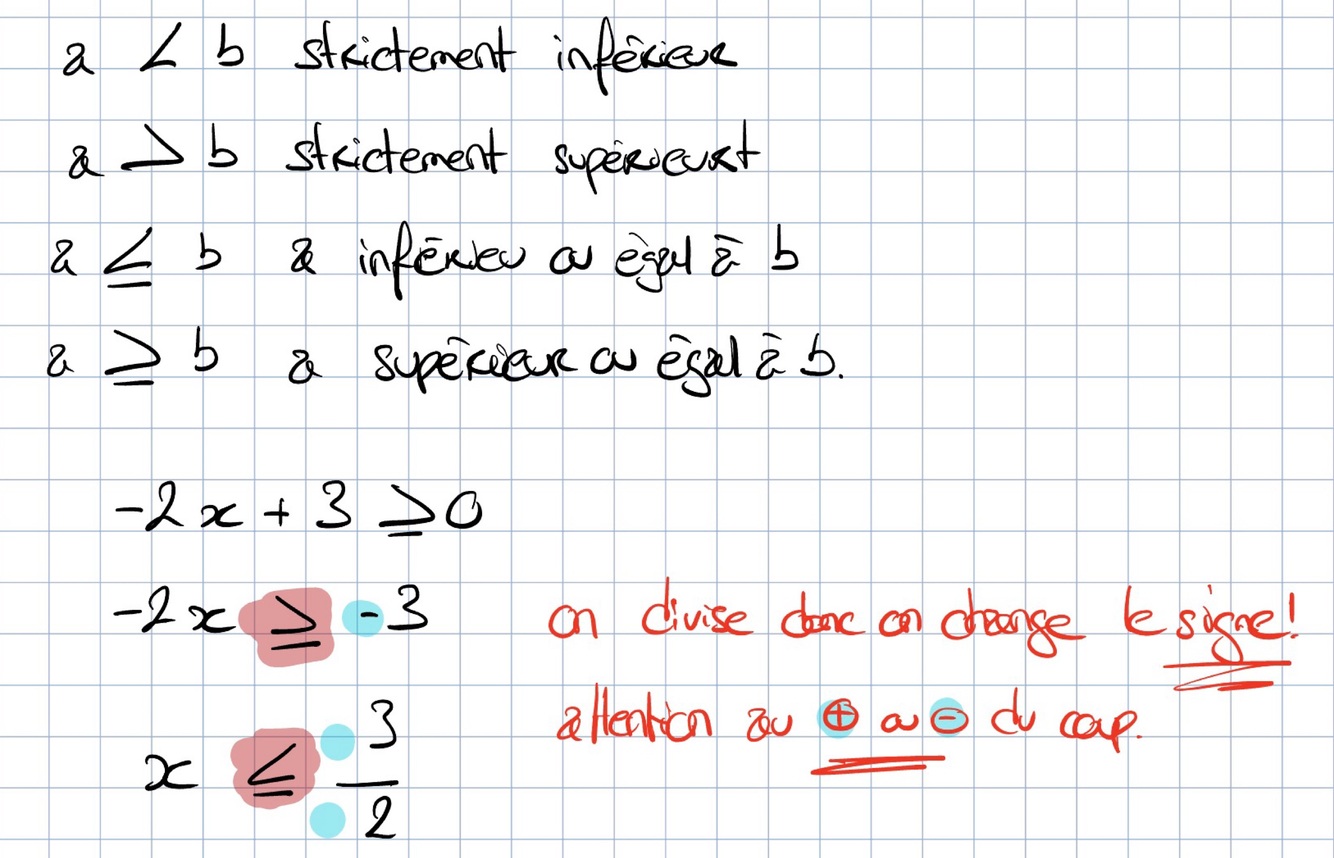 a < b strictement inférieur
a > b strictement supérieurt
a ≤ b a inférieu ou égal à b
a ≥ b a supérieur ou égal à b.
-2x + 3 ≥ 0
-2x ≥ -3 on divise donc on change le signe!
attention au ⊕ ou ⊖ du coup.
x ≤ 3/2